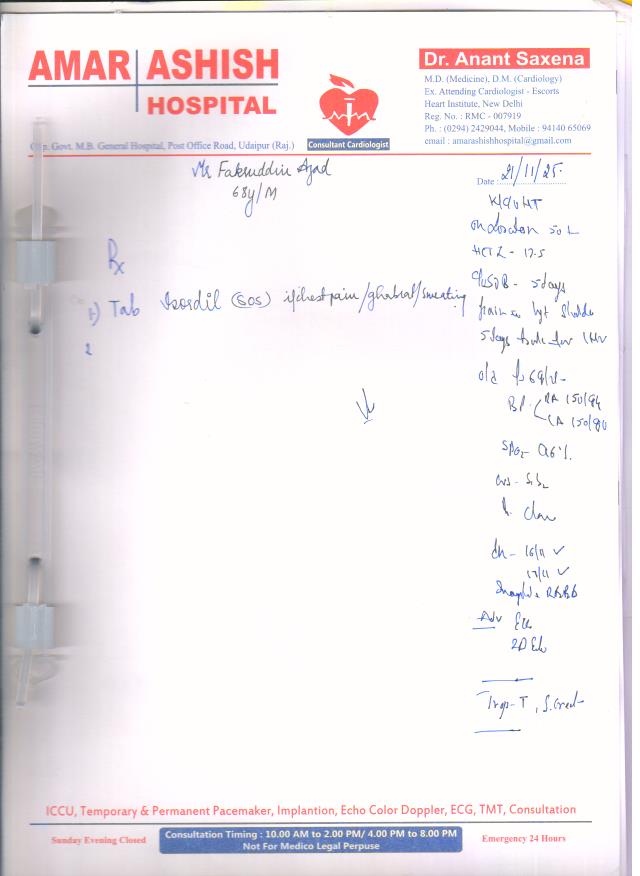 AMAR ASHISH
HOSPITAL
Opp. Govt. M.B. General Hospital, Post Office Road, Udaipur (Raj.)
Consultant Cardiologist
Dr. Anant Saxena
M.D. (Medicine), D.M. (Cardiology)
Ex. Attending Cardiologist - Escorts
Heart Institute, New Delhi
Reg. No. : RMC - 007919
Ph. : (0294) 2429044, Mobile : 94140 65069
email : amarashishhospital@gmail.com
Mr Fakruddin Azad
68y/M
Date : 21/11/25
K/C/O HT
50
HCTZ - 12.5
SOB - 5days
5days
Rx
1) Tab Isordil (SOS) if chest pain/ghabrat/sweating
2
o/e
BP RA 150/94
LA 150/90
SPO2 96%
CVS - S1S2
16/11 ✓
17/11 ✓
RBBB
Adv
2D Echo
Trop-T, S.Creat
ICCU, Temporary & Permanent Pacemaker, Implantion, Echo Color Doppler, ECG, TMT, Consultation
Sunday Evening Closed
Consultation Timing : 10.00 AM to 2.00 PM/ 4.00 PM to 8.00 PM
Not For Medico Legal Perpuse
Emergency 24 Hours